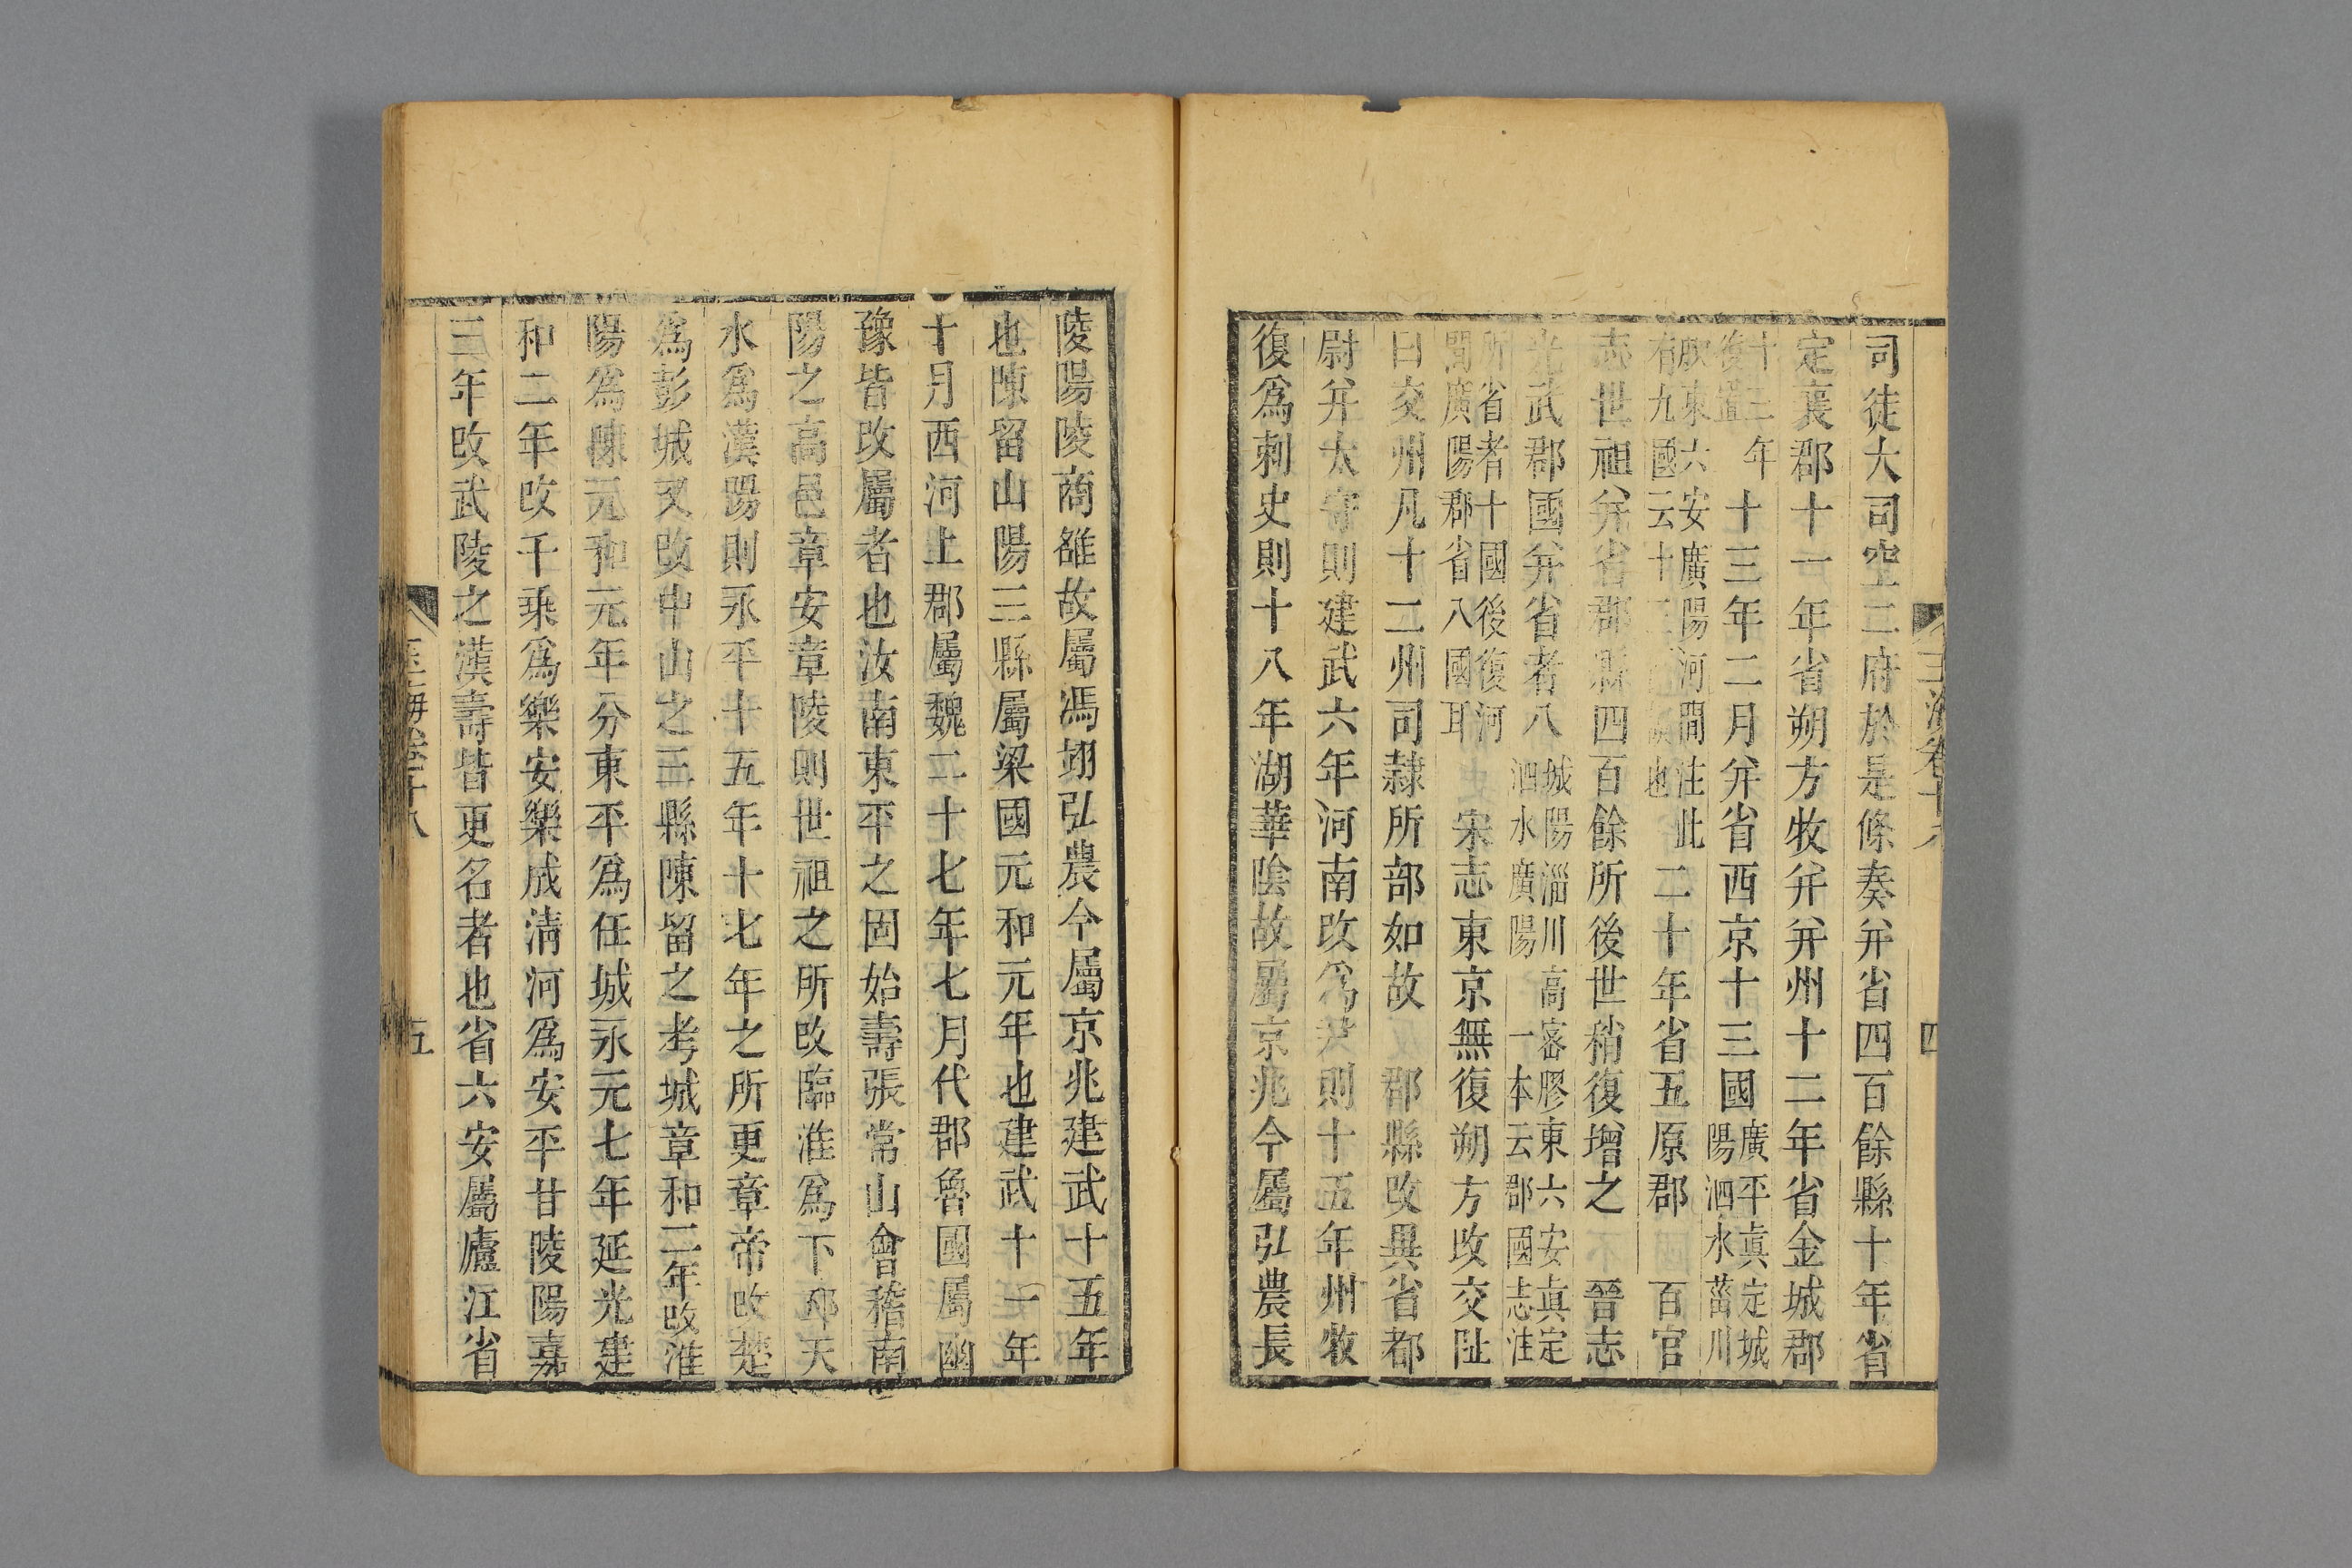 司徒大司空二府於是條奏并省四百餘縣十年省
定襄郡十一年省朔方牧并并州十二年省金城郡
十三年復置十三年二月并省西京十三國廣平真定城陽泗水菑川
東六安廣陽河間注此有九國云十也二十年省五原郡百官
志世祖并省郡縣四百餘所後世稍復增之晉志
光武郡國并省者八城陽淄川高密膠東六安真定泗水廣陽一本云郡國志注
所省者十國後復河間廣陽郡省八國耳宋志東京無復朔方改交阯
曰交州凡十二州司隸所部如故郡縣改異省都
尉并太守則建武六年河南改為尹則十五年州牧
復為刺史則十八年湖華陰故屬京兆今屬弘農長
陵陽陵商雒故屬馮翊弘農今屬京兆建武十五年
也陳留山陽三縣屬梁國元和元年也建武十一年
十月西河上郡屬魏二十七年七月代郡魯國屬幽
豫皆改屬者也汝南東平之固始壽張常山會稽南
陽之高邑章安章陵則世祖之所改臨淮為下邳天
水為漢陽則永平十五年十七年之所更章帝改楚
為彭城又改中山之三縣陳留之考城章和二年改淮
陽為陳元和元年分東平為任城永元七年延光建
和二年改千乘為樂安樂成清河為安平甘陵陽嘉
三年改武陵之漢壽皆更名者也省六安屬廬江省
玉海卷十八
五
玉海卷十八
四